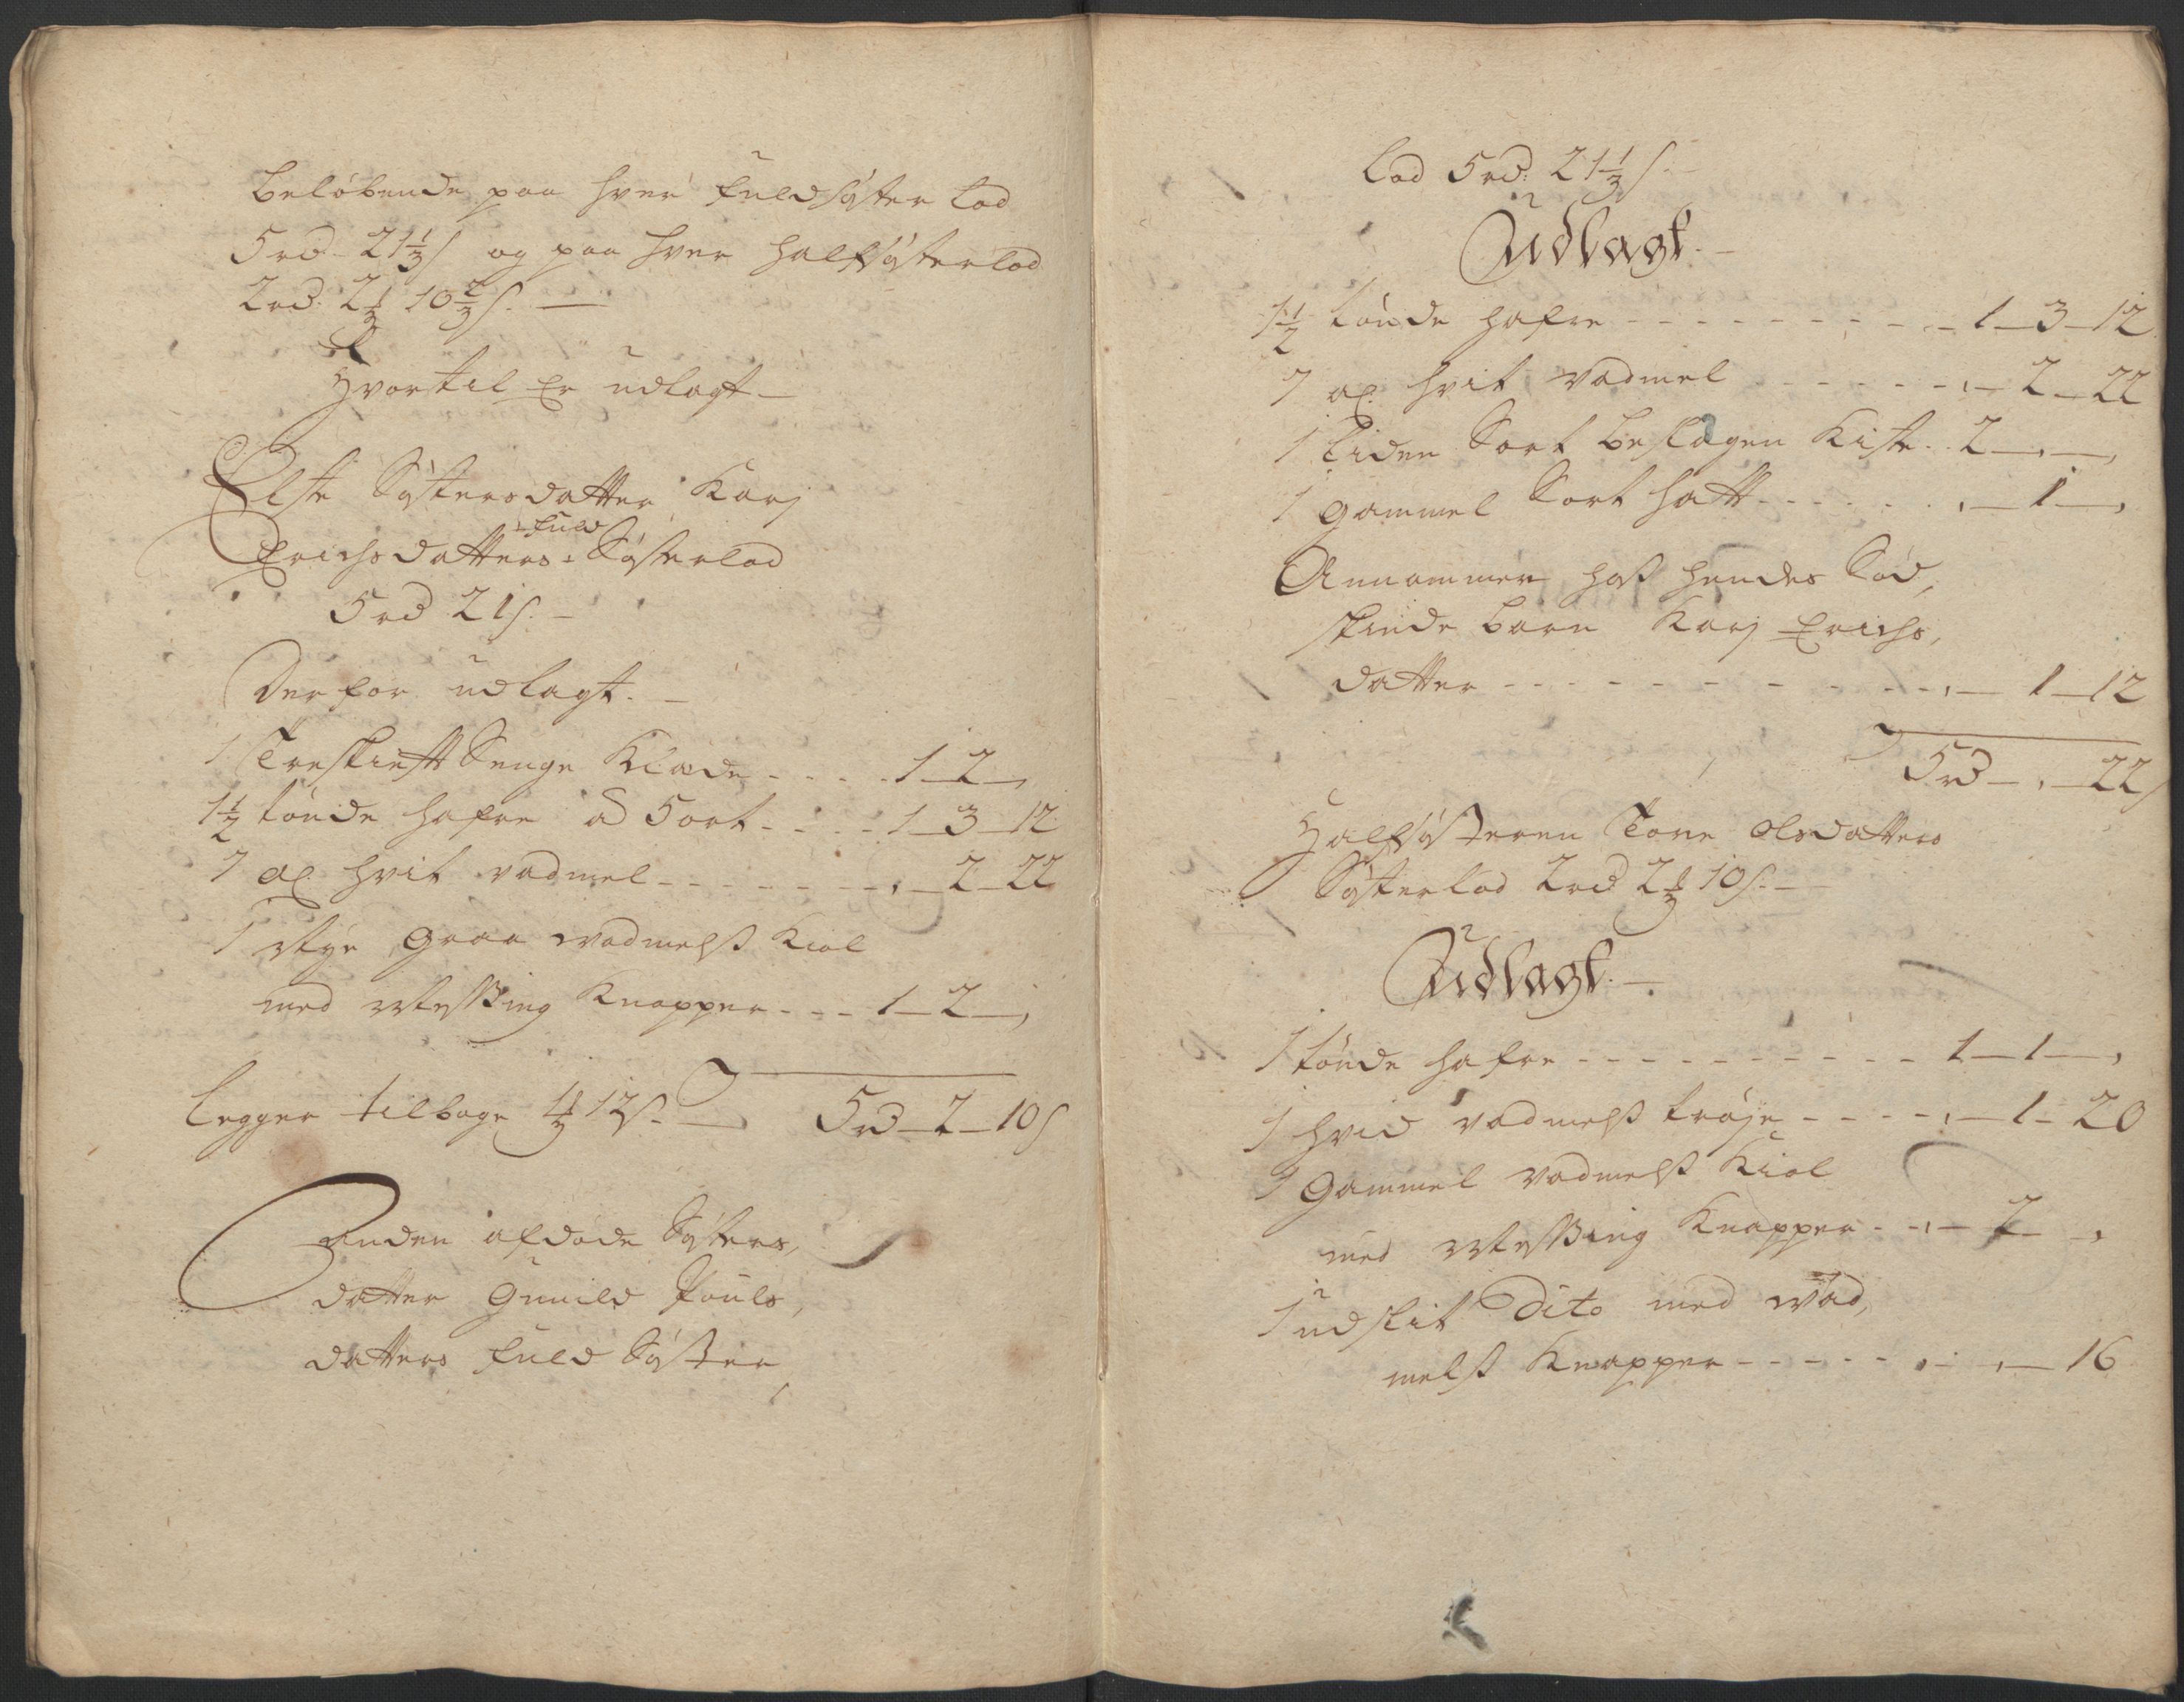 Beløbende paa hver fuldsøster Lod
5 rd. 21⅓ s og paa hver halfsøsterlod
2 rd. 2 ort 10⅔ s.
Hvortil Er udlagt
Elste Søstersdatter Karj
fuld
Erichsdatters Søsterlod
5 rd 21 s.
Derfor udlagt.
1 Treskieft Senge Klæde - - - - 1 - 2 - ,
1½ tønde hafre a 5 ort - - - - 1 - 3 - 12
7 al. hvit vadmel - - - - - - , - 2 - 22
1 Nye graa vadmelß Kiol
med Messing Knapper - - - 1 - 2 - ,
Legger tilbage 1 ort 12 s. 5 rd - 2 - 10 s
Anden afdøde Søsters,
datter Gunild Pouls,
datters fuld Søster
Lod 5 rd. 21⅓ s.
Udlagt.
1½ tønde hafre - - - - - - - - 1 - 3 - 12
7 al. hvit vadmel - - - - - , - 2 - 22
1 Liden Sort beslagen Kiste - 2 - , - ,
1 gammel Sort hatt - - - - - , - 1 - ,
Annammer hoß hendes Sød,
skinde barn Karj Erichs,
datter - - - - - - - - - , - 1 - 12
5 rd - , - 22 s
Halfsøsteren Tore Olsdatters
Søsterlod 2 rd 2 ort 10 s.
Udlagt.
1 tønde hafre - - - - - - - - 1 - 1 - ,
1 hvid vadmelß trøje - - - - , - 1 - 20
1 Gammel vadmelß Kiol
med Messing Knapper - - , - 2 - ,
1 udslit Dito med vad,
melß Knapper - - - - - , - , - 16